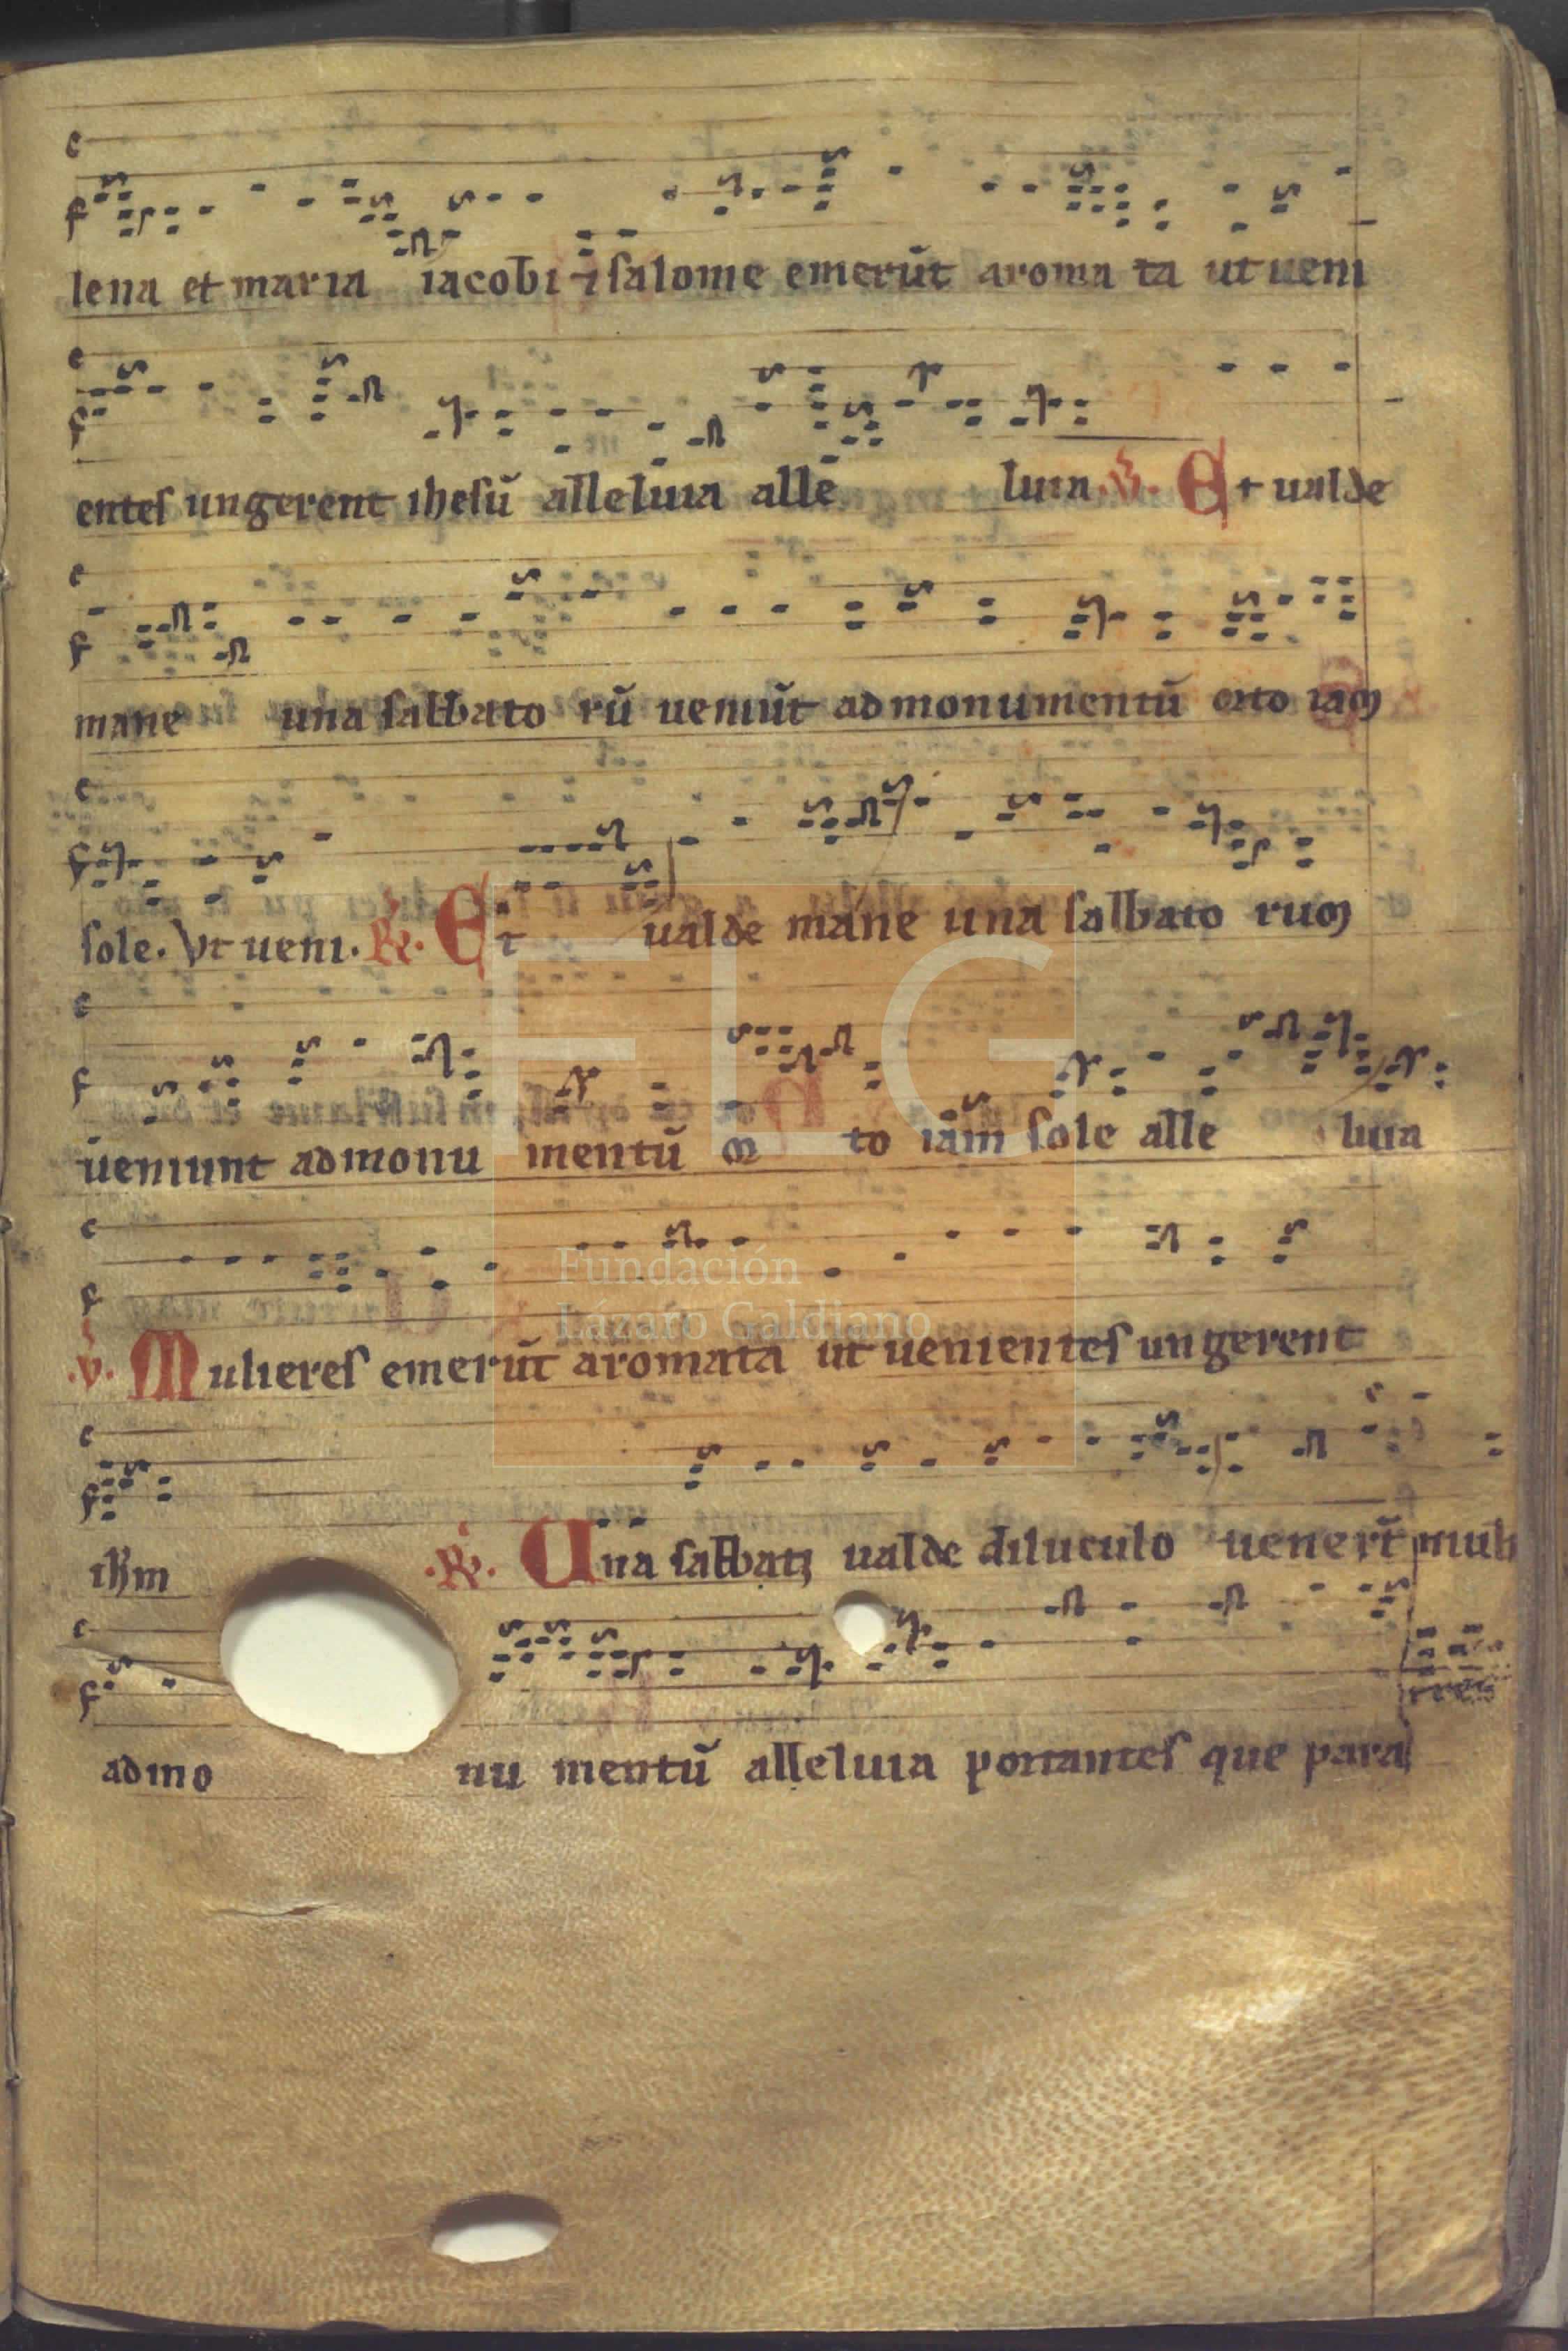 lena et maria iacobi ⁊ salome emerūt aroma ta ut ueni
entes ungerent ihesū alleluia alle luia .V. Et ualde
mane una sabbato rū ueniūt ad monumentū orto iam
sole. Vt ueni. R. Et ualde mane una sabbato rum
ueniunt ad monu mentū or to iam sole alle luia
.V. Mulieres emerūt aromata ut uenientes ungerent
ihm .R. Una sabbatꝫ ualde diluculo uenerūt muli
eres
ad mo nu mentū alleluia portantes que para
FLG
Fundación
Lázaro Galdiano